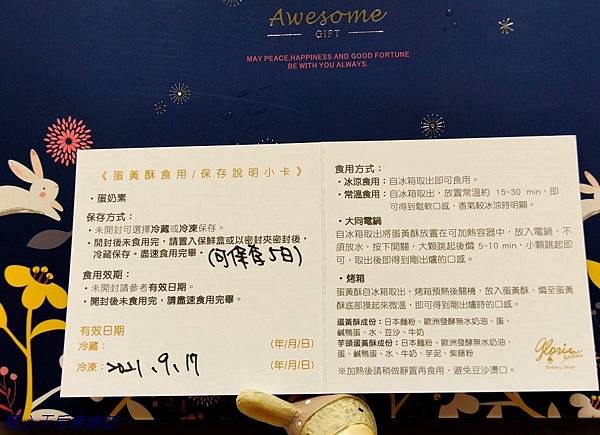 Awesome
GIFT
MAY PEACE,HAPPINESS AND GOOD FORTUNE
BE WITH YOU ALWAYS.
《 蛋黃酥食用/保存說明小卡 》
・蛋奶素
保存方式：
・未開封可選擇冷藏或冷凍保存。
・開封後未食用完，請置入保鮮盒或以密封夾密封後，
冷藏保存，盡速食用完畢。(可保存5日)
食用效期：
・未開封請參考有效日期。
・開封後未食用完，請盡速食用完畢。
有效日期
冷藏： (年/月/日)
冷凍：2021.9.17 (年/月/日)
食用方式：
・冰涼食用：自冰箱取出即可食用。
・常溫食用：自冰箱取出，放置常溫約 15~30 min，即
可得到鬆軟口感，香氣較冰涼時明顯。
・大同電鍋
自冰箱取出將蛋黃酥放置在可加熱容器中，放入電鍋，不
須放水，按下開關，大顆跳起後燜 5~10 min，小顆跳起即
可，取出後即得到剛出爐的口感。
・烤箱
蛋黃酥自冰箱取出，烤箱預熱後關機，放入蛋黃酥，燜至蛋黃
酥底部摸起來微溫，即可得到剛出爐時的口感。
蛋黃酥成份：日本麵粉、歐洲發酵無水奶油、蛋、
鹹鴨蛋、水、豆沙、牛奶
芋頭蛋黃酥成份：日本麵粉、歐洲發酵無水奶油、
蛋、鹹鴨蛋、水、牛奶、芋泥、紫藷粉
※加熱後請稍做靜置再食用，避免豆沙燙口。